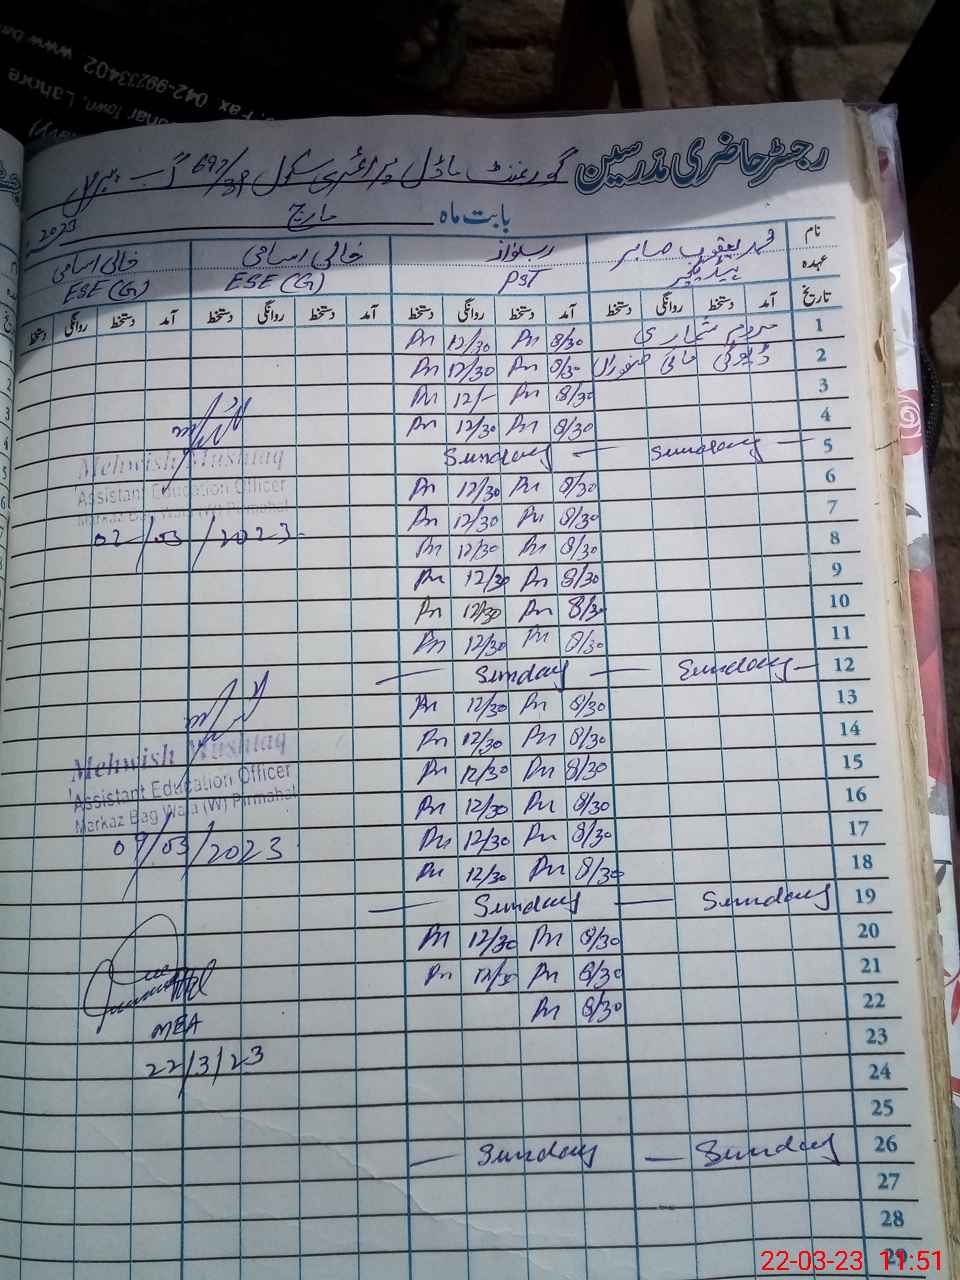 www.
Fax 042-99233402
Town, Lahore
رجسٹر حاضری مدرسین گورنمنٹ ماڈل پرائمری سکول 697/39 گ ب
بابت ماہ مارچ 2023
نام محمد یعقوب صابر ربنواز خالی اسامی خالی اسامی
عہدہ ہیڈ ٹیچر PST ESE (G) ESE (G)
تاریخ آمد دستخط روانگی دستخط آمد دستخط روانگی دستخط آمد دستخط روانگی دستخط آمد دستخط روانگی دستخط
1 مردم شماری 8/30 Rn 12/30 Rn
2 ڈیوٹی 8/30 Rn 12/30 Rn
3 8/30 Rn 12/- Rn
4 8/30 Rn 12/30 Rn
5 — Sunday — Sunday
Mehwish Mushtaq
Assistant Education Officer
Markaz Bag Wala (W) Pirmahal
02/03/2023
6 8/30 Rn 12/30 Rn
7 8/30 Rn 12/30 Rn
8 8/30 Rn 12/30 Rn
9 8/30 Rn 12/30 Rn
10 8/30 Rn 12/30 Rn
11 8/30 Rn 12/30 Rn
12 — Sunday — Sunday —
13 8/30 Rn 12/30 Rn
14 8/30 Rn 12/30 Rn
15 8/30 Rn 12/30 Rn
16 8/30 Rn 12/30 Rn
17 8/30 Rn 12/30 Rn
18 8/30 Rn 12/30 Rn
Mehwish Mushtaq
Assistant Education Officer
Markaz Bag Wala (W) Pirmahal
09/03/2023
19 Sunday — Sunday —
20 8/30 Rn 12/30 Rn
21 8/30 Rn 12/30 Rn
22 8/30 Rn
MEA
22/3/23
23
24
25
26 Sunday — Sunday —
27
28
29
22-03-23 11:51